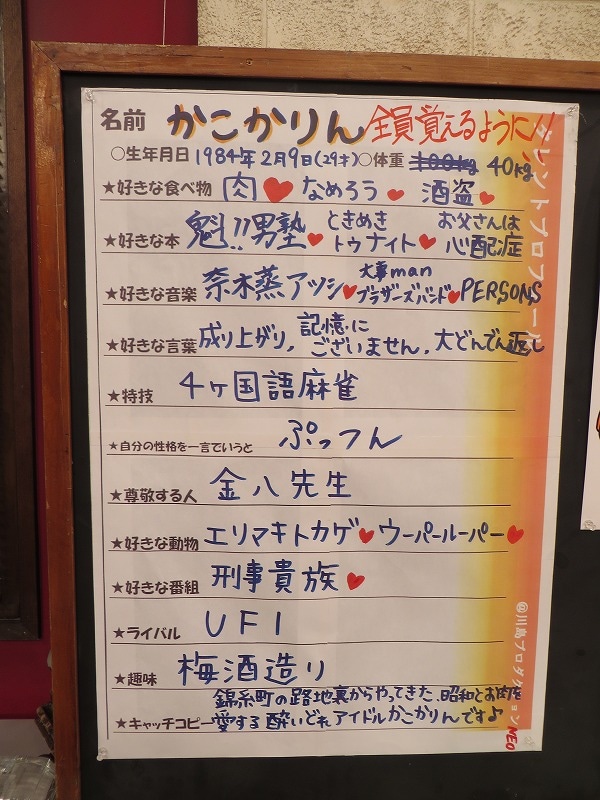 名前 かこかりん 全員覚えるように!!
○生年月日 1984年2月9日(29才) ○体重 100kg 40kg
★好きな食べ物 肉♥ なめろう♥ 酒盗♥
★好きな本 魁!!男塾♥ ときめきトゥナイト♥ お父さんは心配症
★好きな音楽 奈木蒸アツシ♥ 大事manブラザーズバンド♥ PERSONS
★好きな言葉 成り上がり, 記憶にございません, 大どんでん返し
★特技 4ヶ国語麻雀
★自分の性格を一言でいうと ぷっつん
★尊敬する人 金八先生
★好きな動物 エリマキトカゲ♥ウーパールーパー♥
★好きな番組 刑事貴族♥
★ライバル UFI
★趣味 梅酒造り
★キャッチコピー 錦糸町の路地裏からやってきた、昭和とお肉を
愛する酔いどれアイドルかこかりんです♪
タレントプロフィール
@川島プロダクションNEO